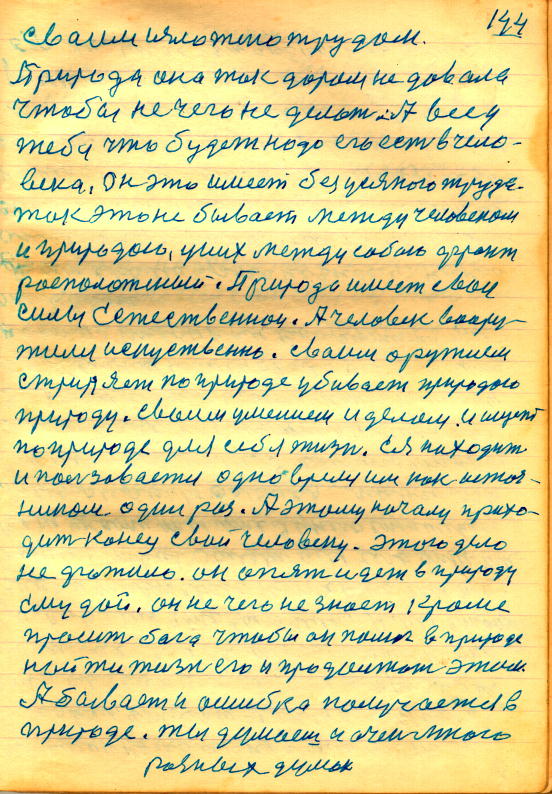 144
своим изложено трудом.
Природа она так даром не давала
чтобы не чего не делат. А всем
тебя что будет надо его ест в чело-
века. Он это имеет без всякого труда.
так это не бывает между человеком
и природою, у них между собою фронт
расположений. Природа имеет свои
силы Естественной. А человек воору-
жили искуственно. своим оружием
стриляет по природе убивает природою
природу. своим умением и делом. и ищет
по природе для себя жизн. Ея находит
и ползавается одно время им как источ-
ником один раз. А этому началу прихо-
дит конец свой человеку. этого дело
не хватило. он опят идет в природу
ему дай. он не чего не знает кроме
просит бога чтобы он помог в природе
найти жизн его и продолжат этом.
А бывает и ошибка получается в
природе. ты думаеш и очен много
разных думок